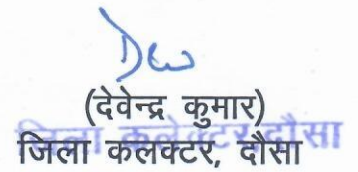 (देवेन्द्र कुमार)
जिला कलक्टर, दौसा
जिला कलेक्टर दौसा